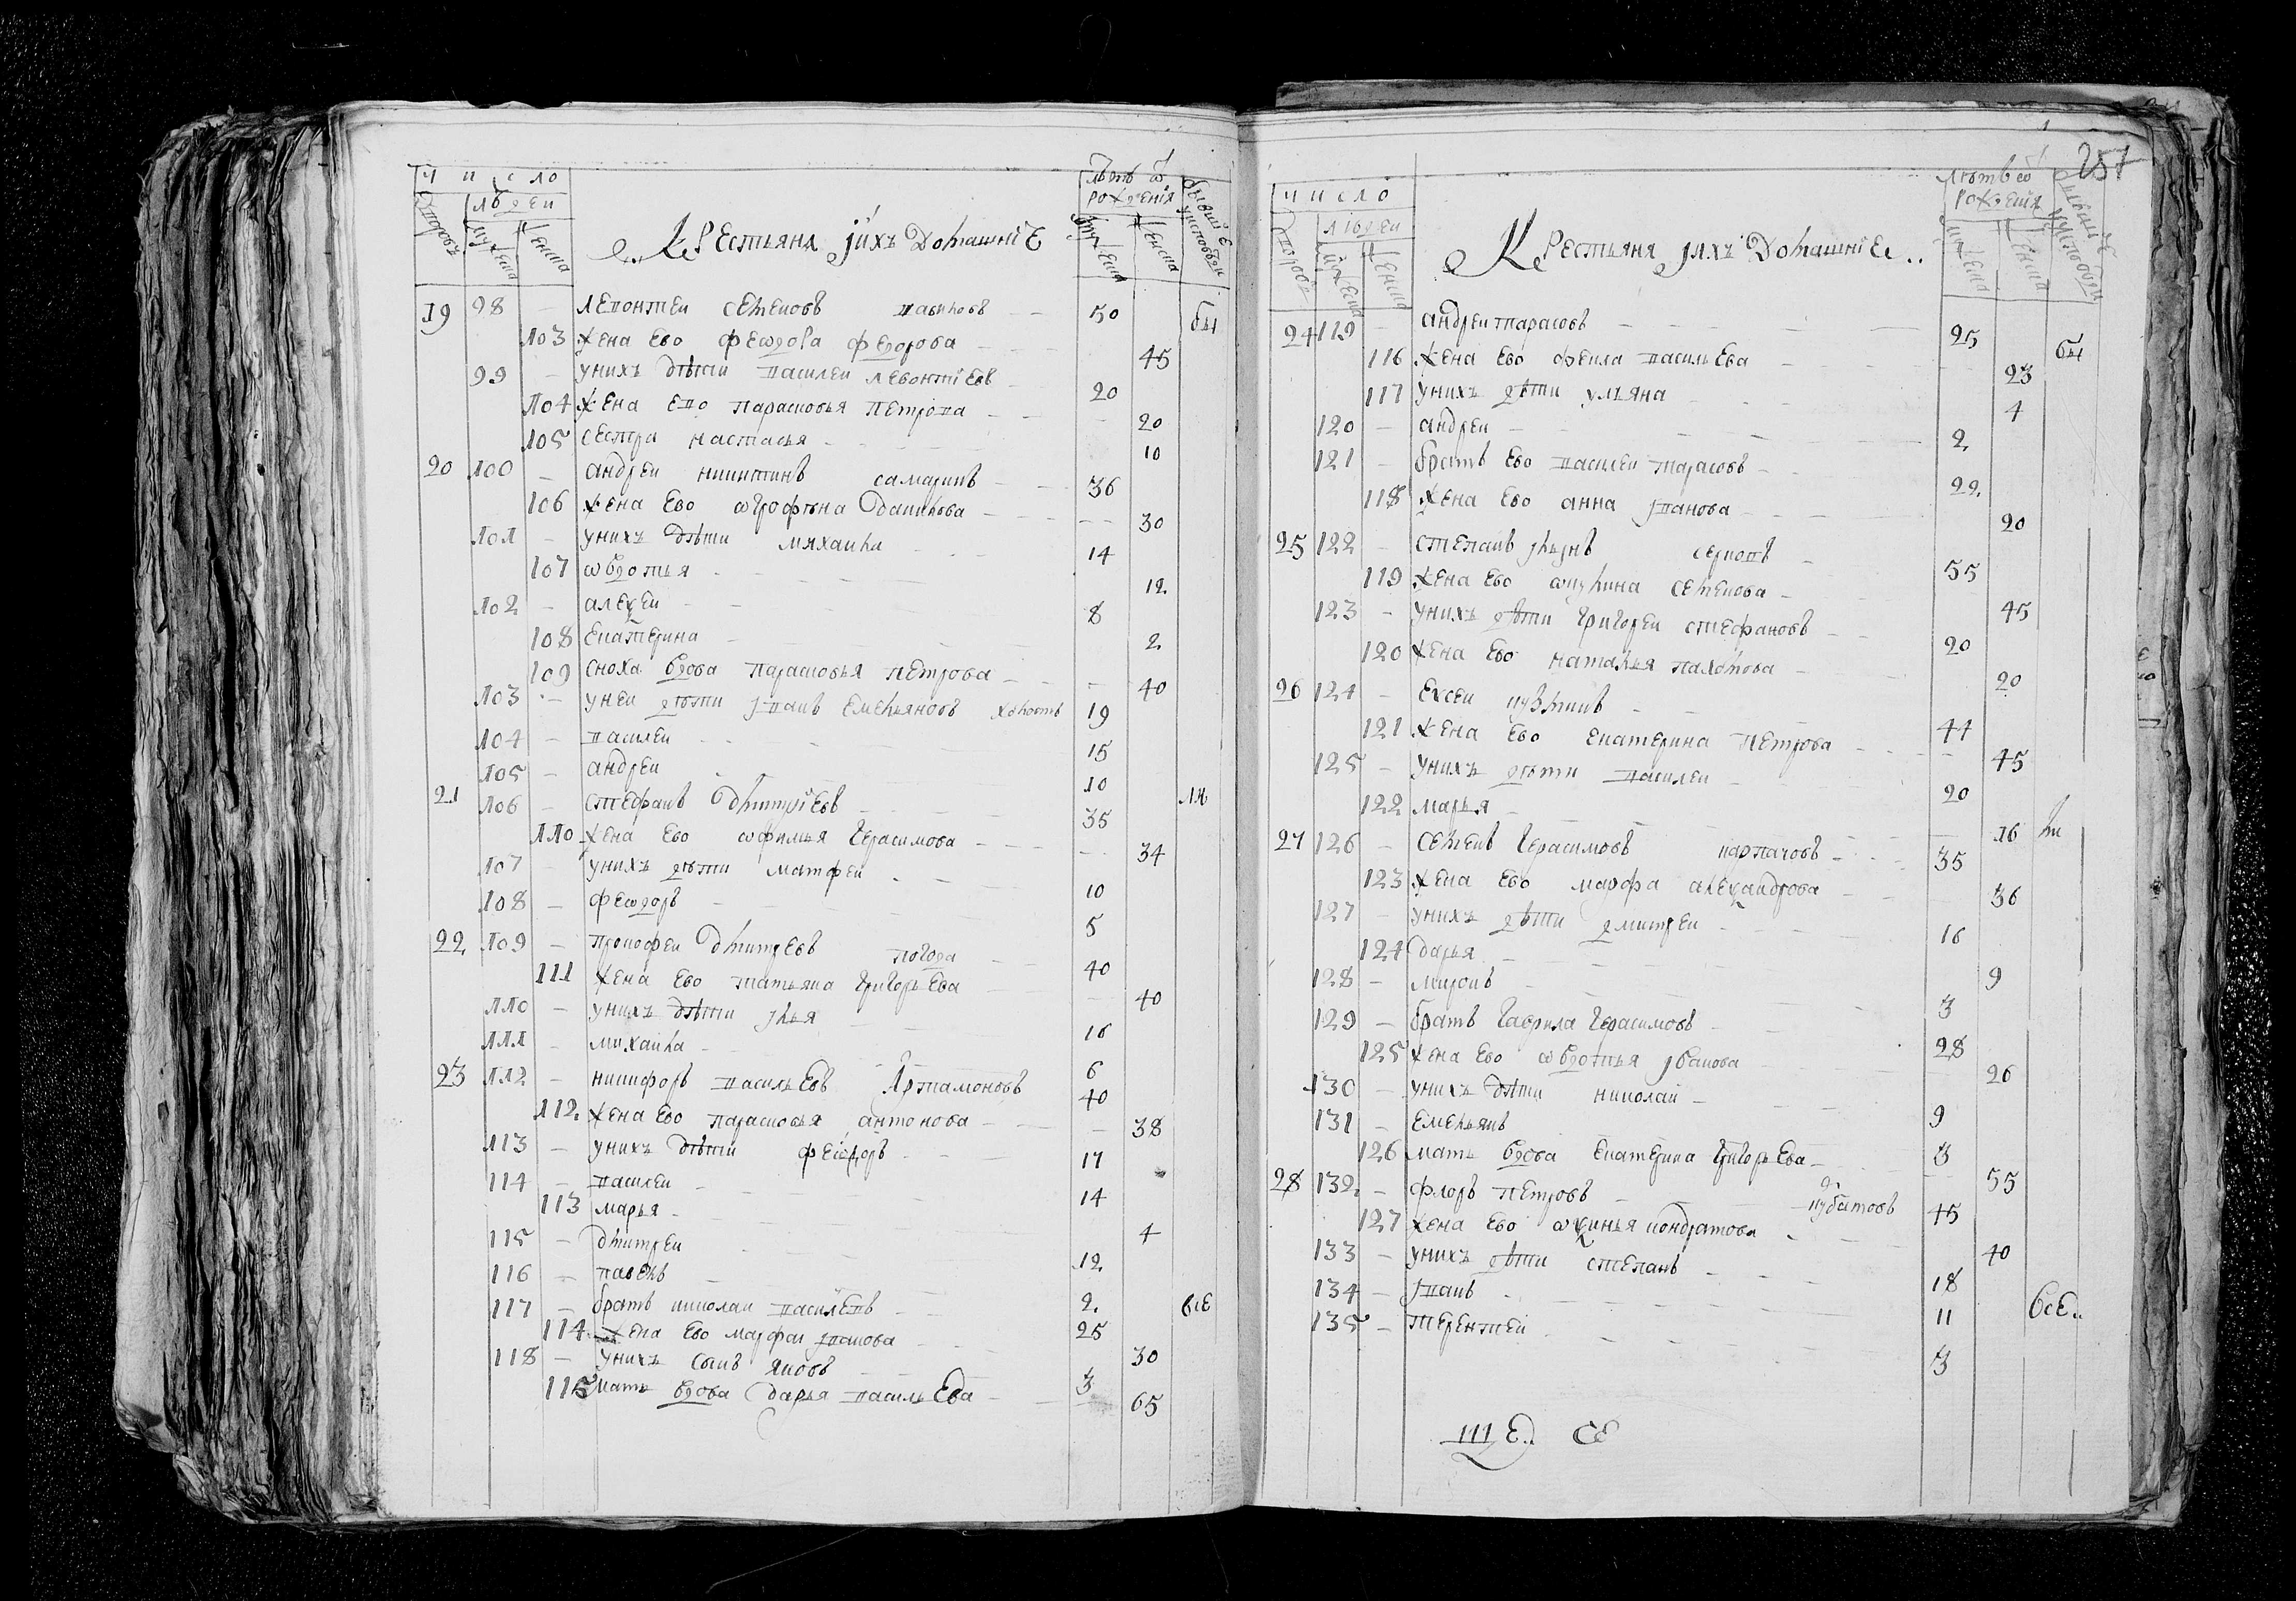 число
людей
дворовъ
мужеска
женска
Крестьяня ихъ домашние
лѣтъ ѿ рождения
мужеска
женска
бывшие у исповеди
19 98 — левонтеи семеновъ павиловъ 50 бы
103 жена ево феѡдора федорова 45
99 — унихъ дѣти василеи левонтиевъ 20
104 жена ево парасковья петрова 20
105 сестра настасья 10
20 100 — андреи никитинъ самаринъ 36
106 жена ево ѡгрофѣна данилова 30
101 — унихъ дѣти михаила 14
107 ѡвдотья 12
102 — алеѯеи 8
108 екатерина 2
109 сноха вдова парасковья петрова 40
103 — унеи дѣти иванъ емельяновъ холостъ 19
104 — василеи 15
105 — андреи 10
21 106 — стефанъ дмитриевъ 35 ли
110 жена ево ѡфимья герасимова 34
107 — унихъ дѣти матфеи 10
108 — феѡдоръ 5
22 109 — прокофеи дмитреевъ погода 40
111 жена ево татьяна григорьева 40
110 — унихъ дѣти илья 16
111 — михаила 6
23 112 — никифоръ васильевъ Артамоновъ 40
112 жена ево парасковья антонова 38
113 — унихъ дѣти феѡдоръ 17
114 — василеи 14
113 марья 4
115 — дмитреи 12
116 — павелъ 2
117 — братъ николаи василевъ 25 все
114 жена ево марфа иванова 30
118 — унихъ сынъ яковъ 3
115 мать вдова дарья васильева 65
257
число
людеи
дворовъ
мужеска
женска
Крестьяня ихъ домашние
лѣтъ ѿ рождения
мужеска
женска
бывшие у исповеди
24 119 — андреи тарасовъ 25 бы
116 жена ево фекла васильева 23
117 унихъ дѣти ульяна 4
120 — андреи 2
121 — братъ ево василеи тарасовъ 22
118 жена ево анна иванова 20
25 122 — степанъ ильинъ серковъ 55
119 жена ево ѡкулина семенова 45
123 — унихъ дѣти григореи стефановъ 20
120 жена ево наталья пахомова 20
26 124 — еѯеи кузминъ 44
121 жена ево екатерина петрова 45
125 — унихъ дѣти василеи 20
122 марья 16 ли
27 126 — семенъ герасимовъ карпачовъ 35
123 жена ево марфа алеѯандрова 36
127 — унихъ дѣти дмитреи 16
124 дарья 9
128 — миронъ 3
129 — братъ гаврила герасимовъ 28
125 жена ево ѡвдотья иванова 26
130 — унихъ дѣти николаи 9
131 — емельянъ 3
126 мать вдова екатерина григорьева 55
28 132 — флоръ петровъ кубатовъ 45
127 жена ево ѡѯинья кондратова 40
133 — унихъ дѣти степанъ 18
134 — иванъ 11 все
135 — терентеи 3